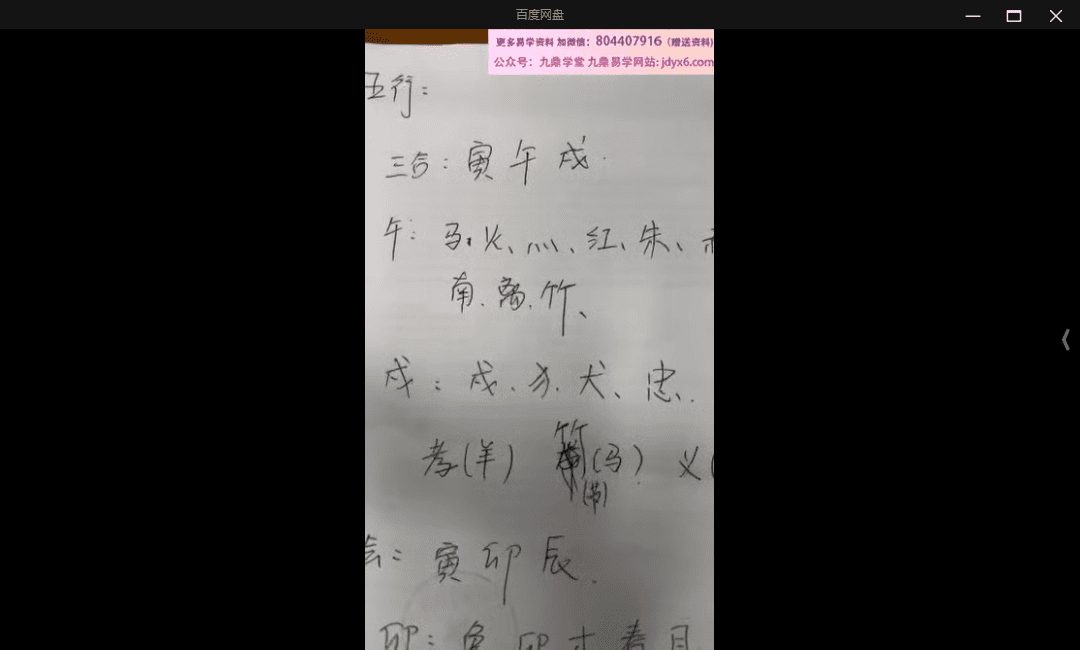 百度网盘
更多易学资料 加微信：804407916（赠送资料）
公众号：九鼎学堂 九鼎易学网站: jdyx6.com
五行：
三合：寅 午 戌.
午：马、火、灬、红、朱、
南、离、竹、
戌：戌、犭、犬、忠.
孝(羊) (马) 义(
会：寅 卯 辰.
卯：兔 卯 木 春 月